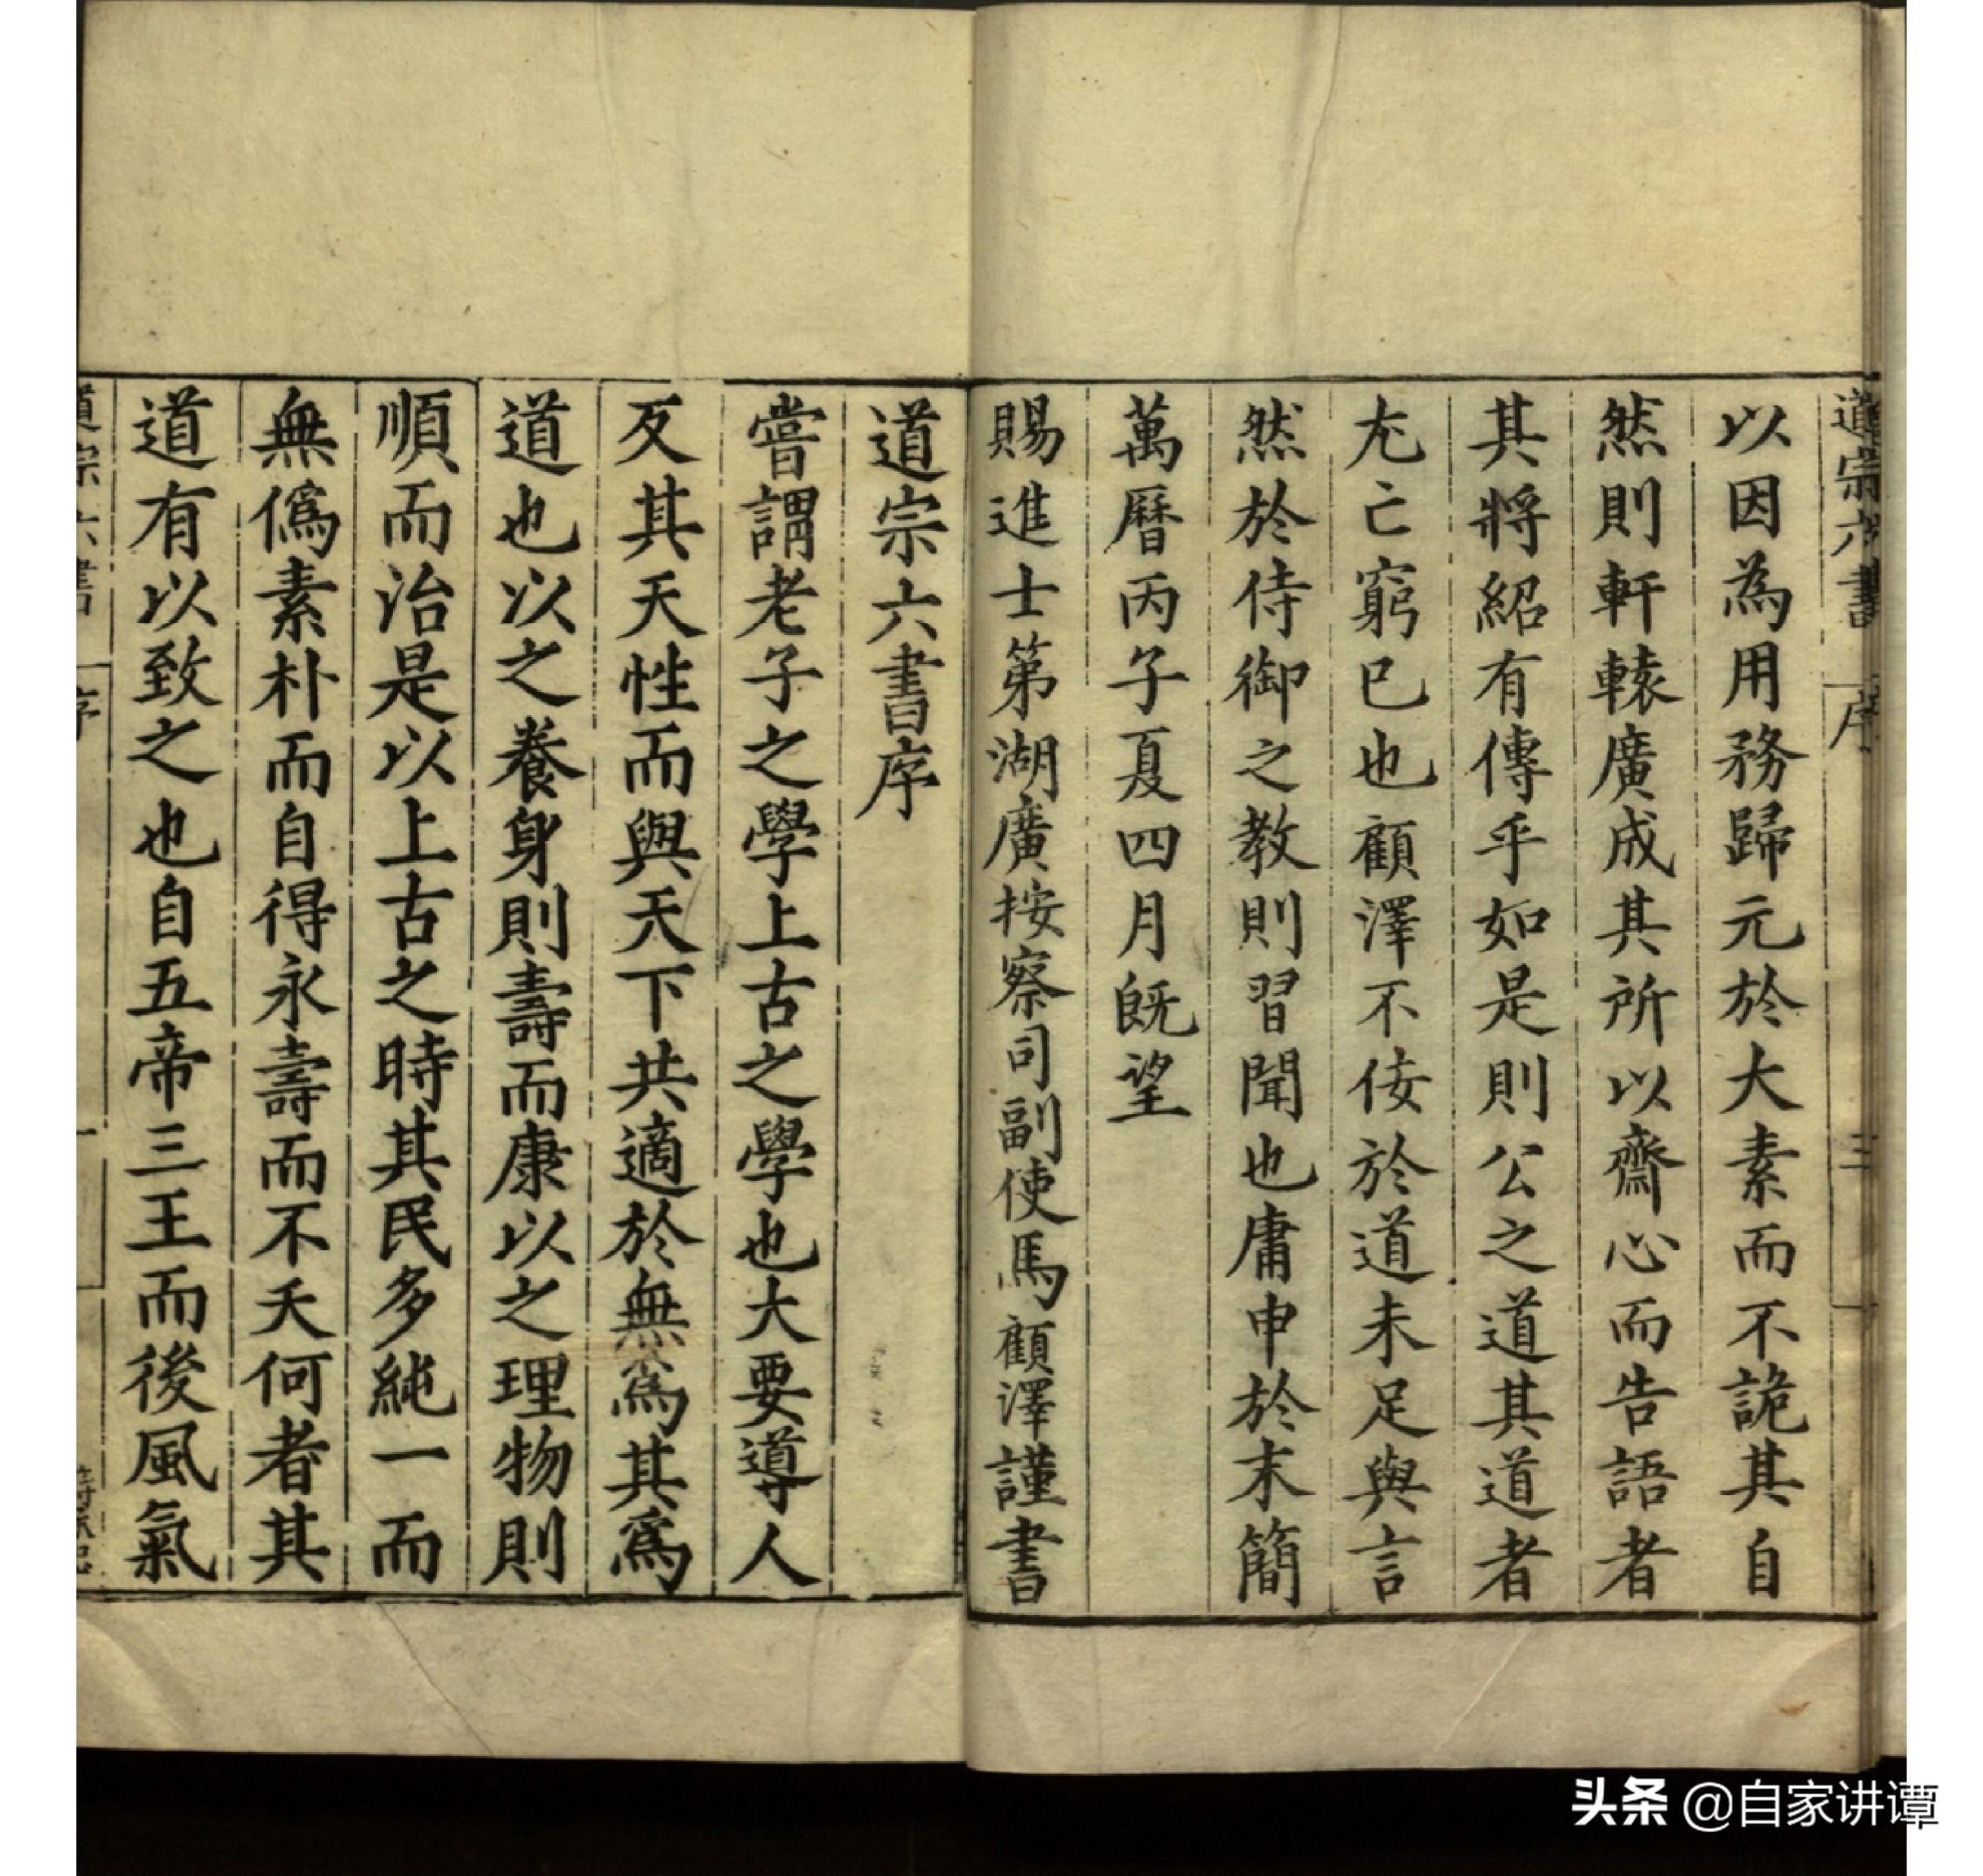 道宗六書 序 三
以因為用務歸元於大素而不詭其自
然則軒轅廣成其所以齋心而告語者
其將紹有傳乎如是則公之道其道者
尤亡窮已也顧澤不佞於道未足與言
然於侍御之教則習聞也庸申於末簡
萬曆丙子夏四月既望
賜進士第湖廣按察司副使馬顧澤謹書
道宗六書序
嘗謂老子之學上古之學也大要導人
反其天性而與天下共適於無為其為
道也以之養身則壽而康以之理物則
順而治是以上古之時其民多純一而
無偽素朴而自得永壽而不夭何者其
道有以致之也自五帝三王而後風氣
道宗六書 序
头条 @自家讲谭